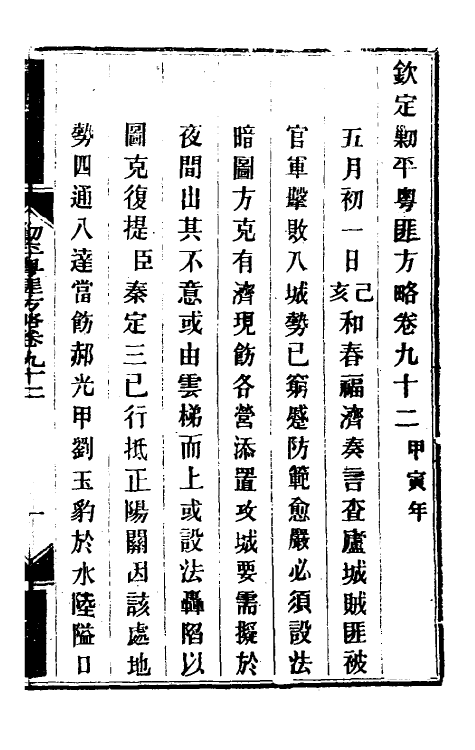 欽定剿平粵匪方略卷九十二 甲寅年
五月初一日己亥和春福濟奏言查廬城賊匪被
官軍擊敗入城勢已窮蹙防範愈嚴必須設法
暗圖方克有濟現飭各營添置攻城要需擬於
夜間出其不意或由雲梯而上或設法轟陷以
圖克復提臣秦定三已行抵正陽關因該處地
勢四通八達當飭郝光甲劉玉豹於水陸隘口
剿平粵匪方略卷九十二
一